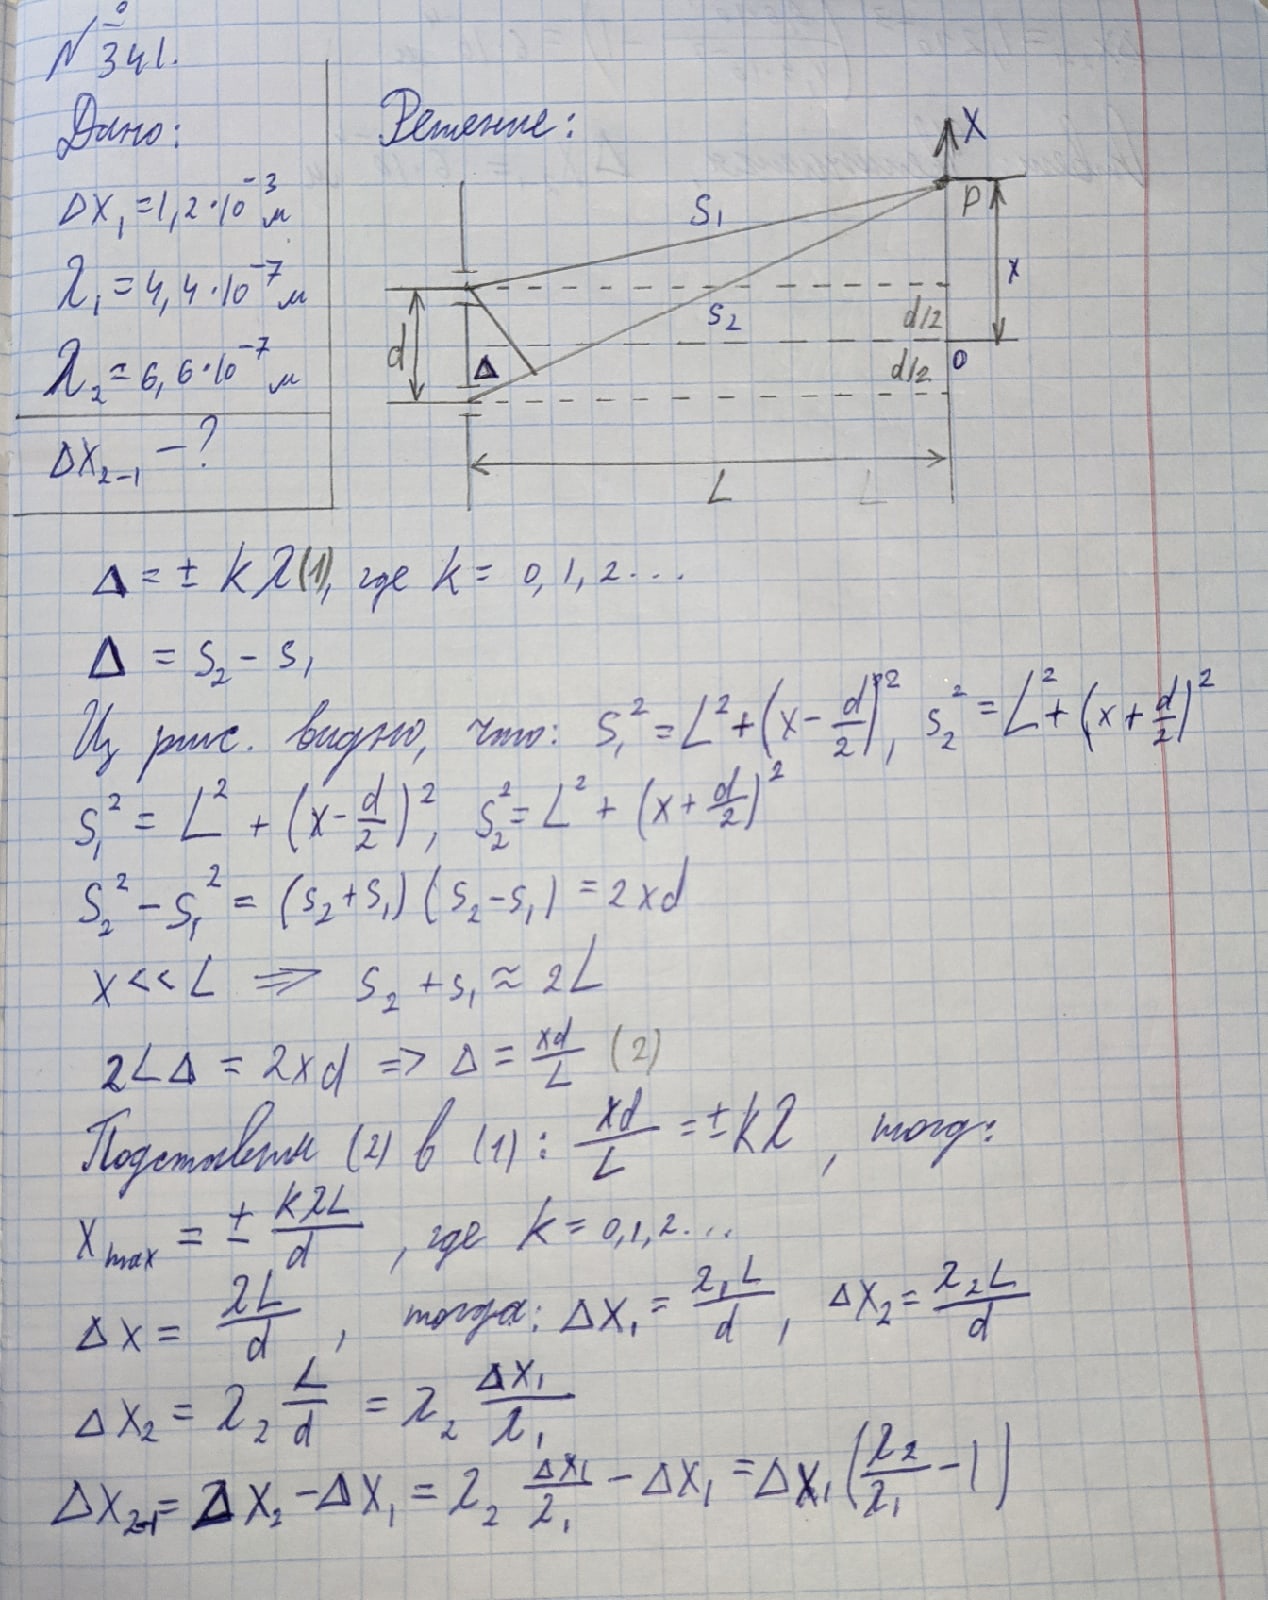 № 341.
Дано:
Δx₁ = 1,2·10⁻³ м
λ₁ = 4,4·10⁻⁷ м
λ₂ = 6,6·10⁻⁷ м
Δx₂₋₁ – ?
Решение:
X
S₁
P
x
S₂
d/2
d
Δ
d/2
0
L
L
Δ = ± kλ (1), где k = 0, 1, 2...
Δ = S₂ – S₁
Из рис. видно, что: S₁² = L² + (x – d/2)², S₂² = L² + (x + d/2)²
S₁² = L² + (x – d/2)², S₂² = L² + (x + d/2)²
S₂² – S₁² = (S₂ + S₁)(S₂ – S₁) = 2xd
x << L ⇒ S₂ + S₁ ≈ 2L
2LΔ = 2xd => Δ = xd/L (2)
Подставим (2) в (1): xd/L = ± kλ, тогд:
x max = ± kλL/d, где k = 0,1,2...
Δx = λL/d, тогда: Δx₁ = λ₁L/d, Δx₂ = λ₂L/d
Δx₂ = λ₂ L/d = λ₂ Δx₁/λ₁
Δx₂₋₁ = Δx₂ – Δx₁ = λ₂ Δx₁/λ₁ – Δx₁ = Δx₁ (λ₂/λ₁ – 1)